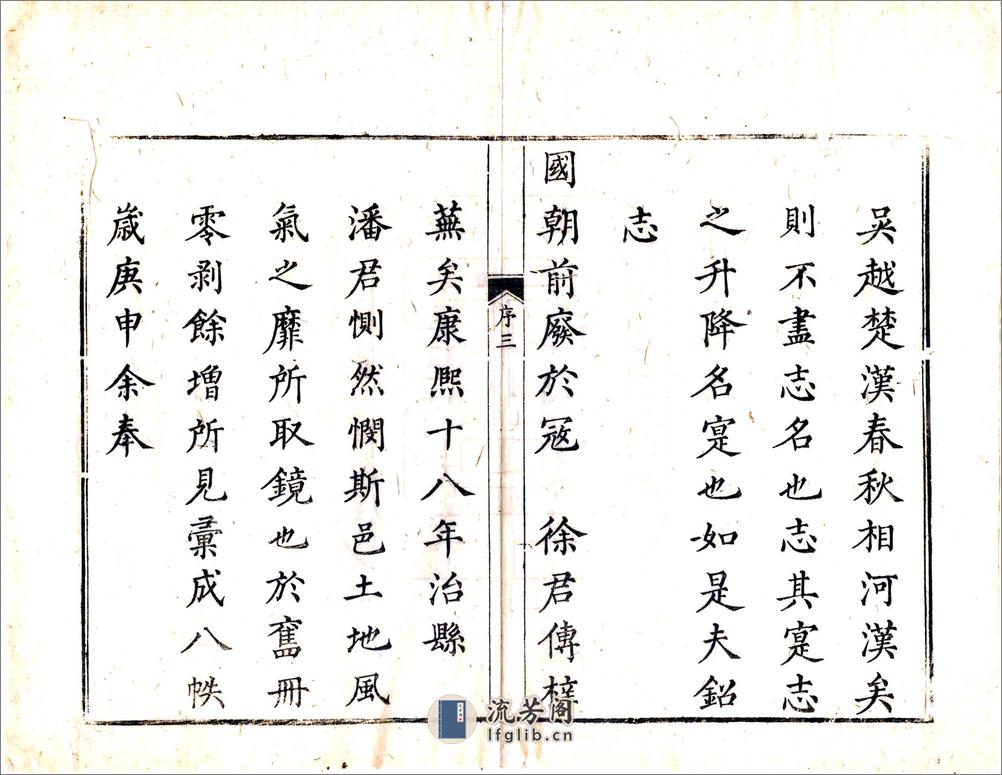 吴越楚漢春秋相河漢矣
則不盡志名也志其寔志
之升降名寔也如是夫鉊
志
國朝前廢於寇 徐君傳梓
序三
蕪矣康熙十八年治縣
潘君惻然憫斯邑土地風
氣之靡所取鏡也於舊冊
零剥餘增所見彚成八帙
嵗庚申余奉
流芳阁
lfglib.cn